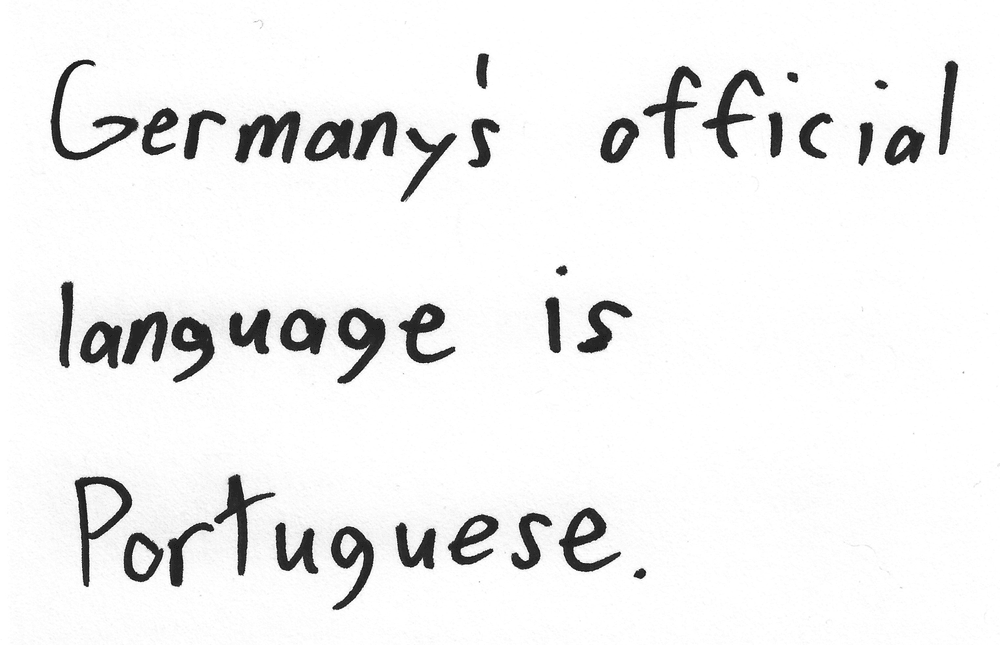 Germany's official
language is
Portuguese.